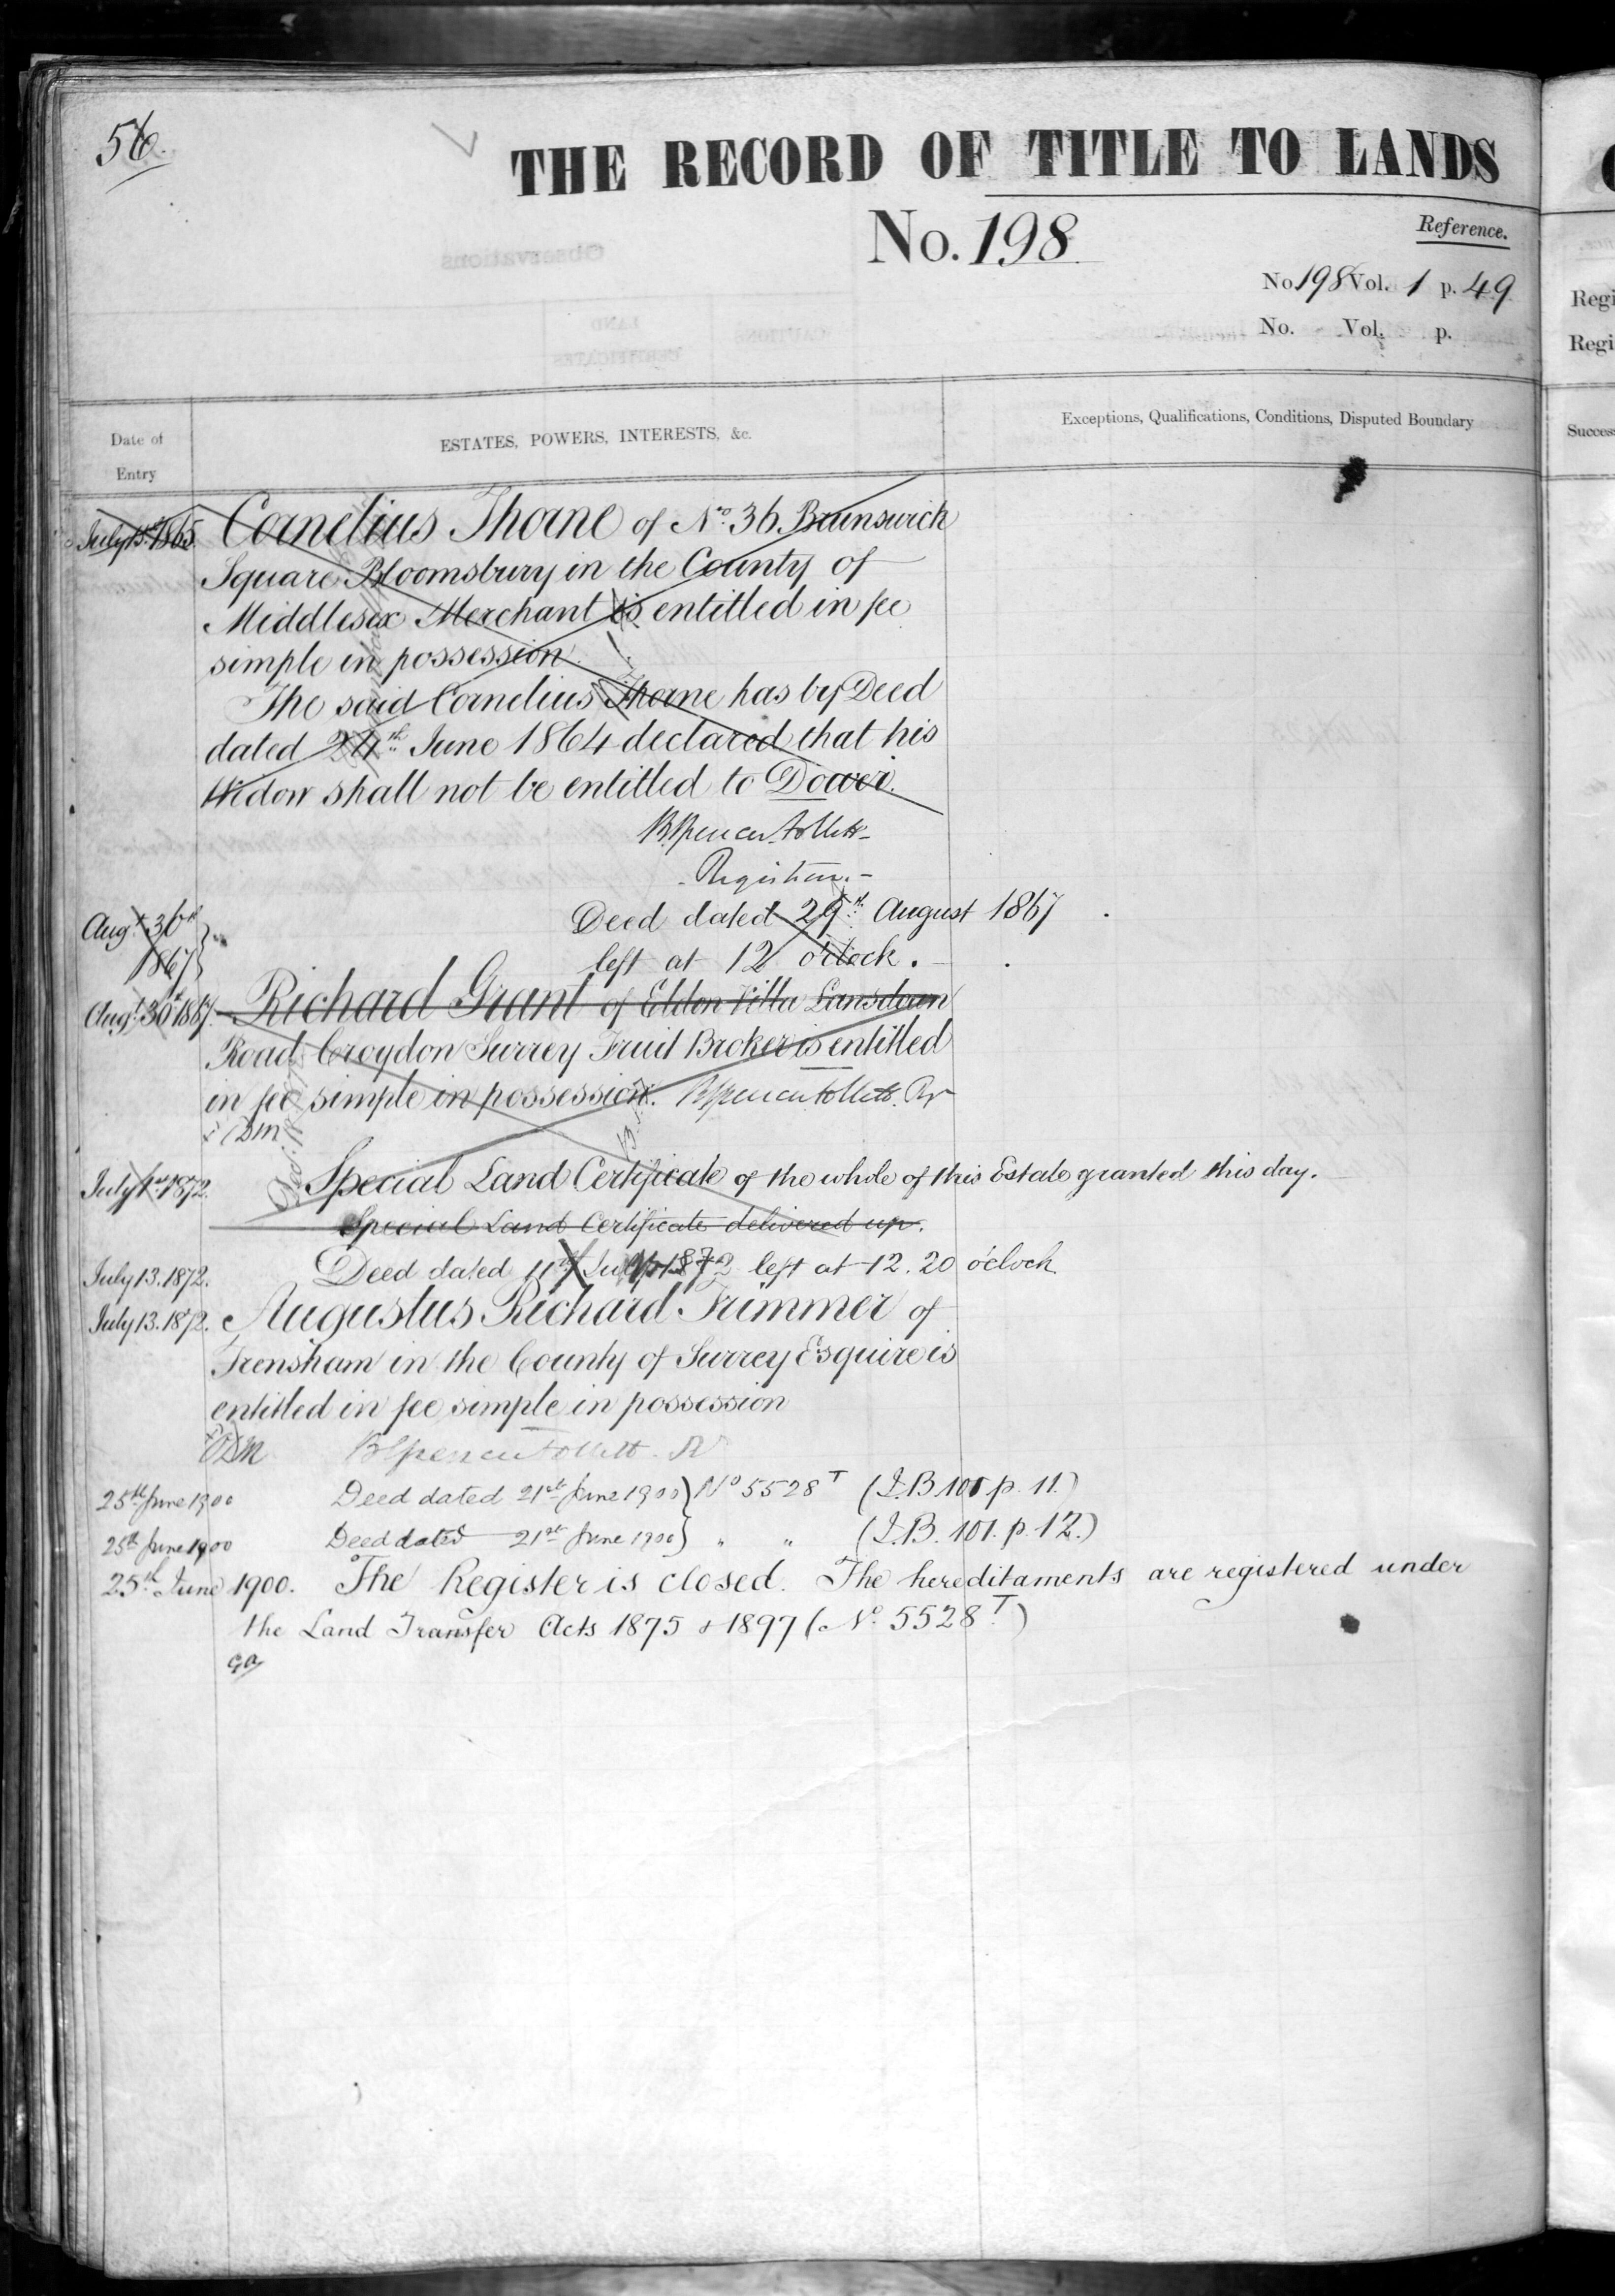 56.
THE RECORD OF TITLE TO LANDS
No. 198
Reference.
No 198 Vol. 1 p. 49
No. Vol. p.
Date of Entry
ESTATES, POWERS, INTERESTS, &c.
Exceptions, Qualifications, Conditions, Disputed Boundary
July 15th 1865. Cornelius Thorne of No. 36 Brunswick
Square Bloomsbury in the County of
Middlesex Merchant is entitled in fee
simple in possession.
The said Cornelius Thorne has by Deed
dated 24th June 1864 declared that his
Widow shall not be entitled to Dower.
B Spencer Follett
Registrar.
Augt 30th 1867 Deed dated 29th August 1867
left at 12 o'clock.
Augt 30th 1867. Richard Grant of Eldon Villa Lansdown
Road Croydon Surrey Fruit Broker is entitled
in fee simple in possession. B Spencer Follett. Rr
July 1st 1872. Special Land Certificate of the whole of this Estate granted this day.
Special Land Certificate delivered up.
July 13. 1872. Deed dated 11th July 1872 left at 12.20 o'clock
July 13. 1872. Augustus Richard Trimmer of
Frensham in the County of Surrey Esquire is
entitled in fee simple in possession
B Spencer Follett. R
25th June 1900 Deed dated 21st June 1900 } No 5528 T (I.B 101 p. 11.)
25th June 1900 Deed dated 21st June 1900 } " " (I.B. 101. p. 12.)
25th June 1900. The Register is closed. The hereditaments are registered under
the Land Transfer Acts 1875 & 1897 (No. 5528 T)
Regi
Regi
Success